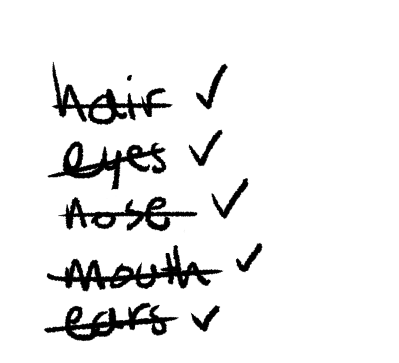 hair ✓
eyes ✓
nose ✓
mouth ✓
ears ✓